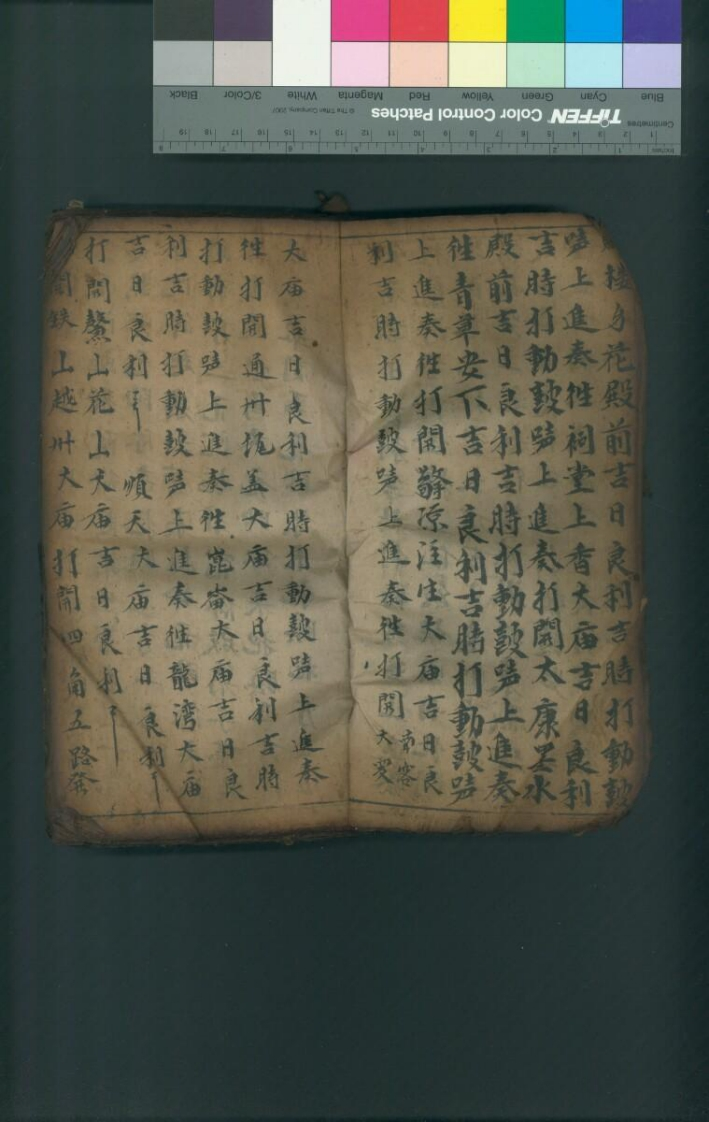 楼夛花殿前吉日良利吉時打動鼓
声上進奏徃祠堂上香大庙吉日良利
吉時打動鼓声上進奏打開太康墨水
殿前吉日良利吉時打動鼓声上進奏
徃青草安下吉日良利吉時打動鼓声
上進奏徃打開 涼注生大庙吉日良
利吉時打動鼓声上進奏徃打開
大庙吉日良利吉時打動鼓声上進奏
徃打開通州 盖大庙吉日良利吉時
打動鼓声上進奏徃崑崙大庙吉日良
利吉時打動鼓声上進奏徃龍湾大庙
吉日良利 順天大庙吉日良利
打開鰲山花山大庙吉日良利
開鉄山越州大庙打開四角五路發
Blue Cyan Green Yellow Red Magenta White 3/Color Black
TIFFEN Color Control Patches
© The Tiffen Company, 2007
Centimetres